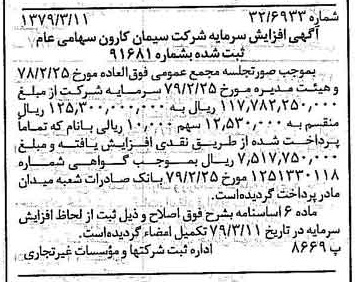 شماره ۳۲/۶۹۳۳ ۱۳۷۹/۳/۱۱
آگهی افزایش سرمایه شرکت سیمان کارون سهامی عام
ثبت شده بشماره ۹۱۶۸۱
بموجب صورتجلسه مجمع عمومی فوق‌العاده مورخ ۷۸/۲/۲۵
و هیئت مدیره مورخ ۷۹/۲/۲۵ سرمایه شرکت از مبلغ
۱۱۷,۷۸۲,۲۵۰,۰۰۰ ریال به ۱۲۵,۳۰۰,۰۰۰,۰۰۰ ریال
منقسم به ۱۲,۵۳۰,۰۰۰ سهم ۱۰,۰۰۰ ریالی بانام که تماماً
پرداخت شده از طریق نقدی افزایش یافته و مبلغ
۷,۵۱۷,۷۵۰,۰۰۰ ریال بموجب گواهی شماره
۱۲۵۱۳۳۰۱۱۸ مورخ ۷۹/۲/۲۵ بانک صادرات شعبه میدان
مادر پرداخت گردیده‌است.
ماده ۶ اساسنامه بشرح فوق اصلاح و ذیل ثبت از لحاظ افزایش
سرمایه در تاریخ ۷۹/۳/۱۱ تکمیل امضاء گردیده‌است.
پ ۸۶۶۹ اداره ثبت شرکتها و مؤسسات غیرتجاری